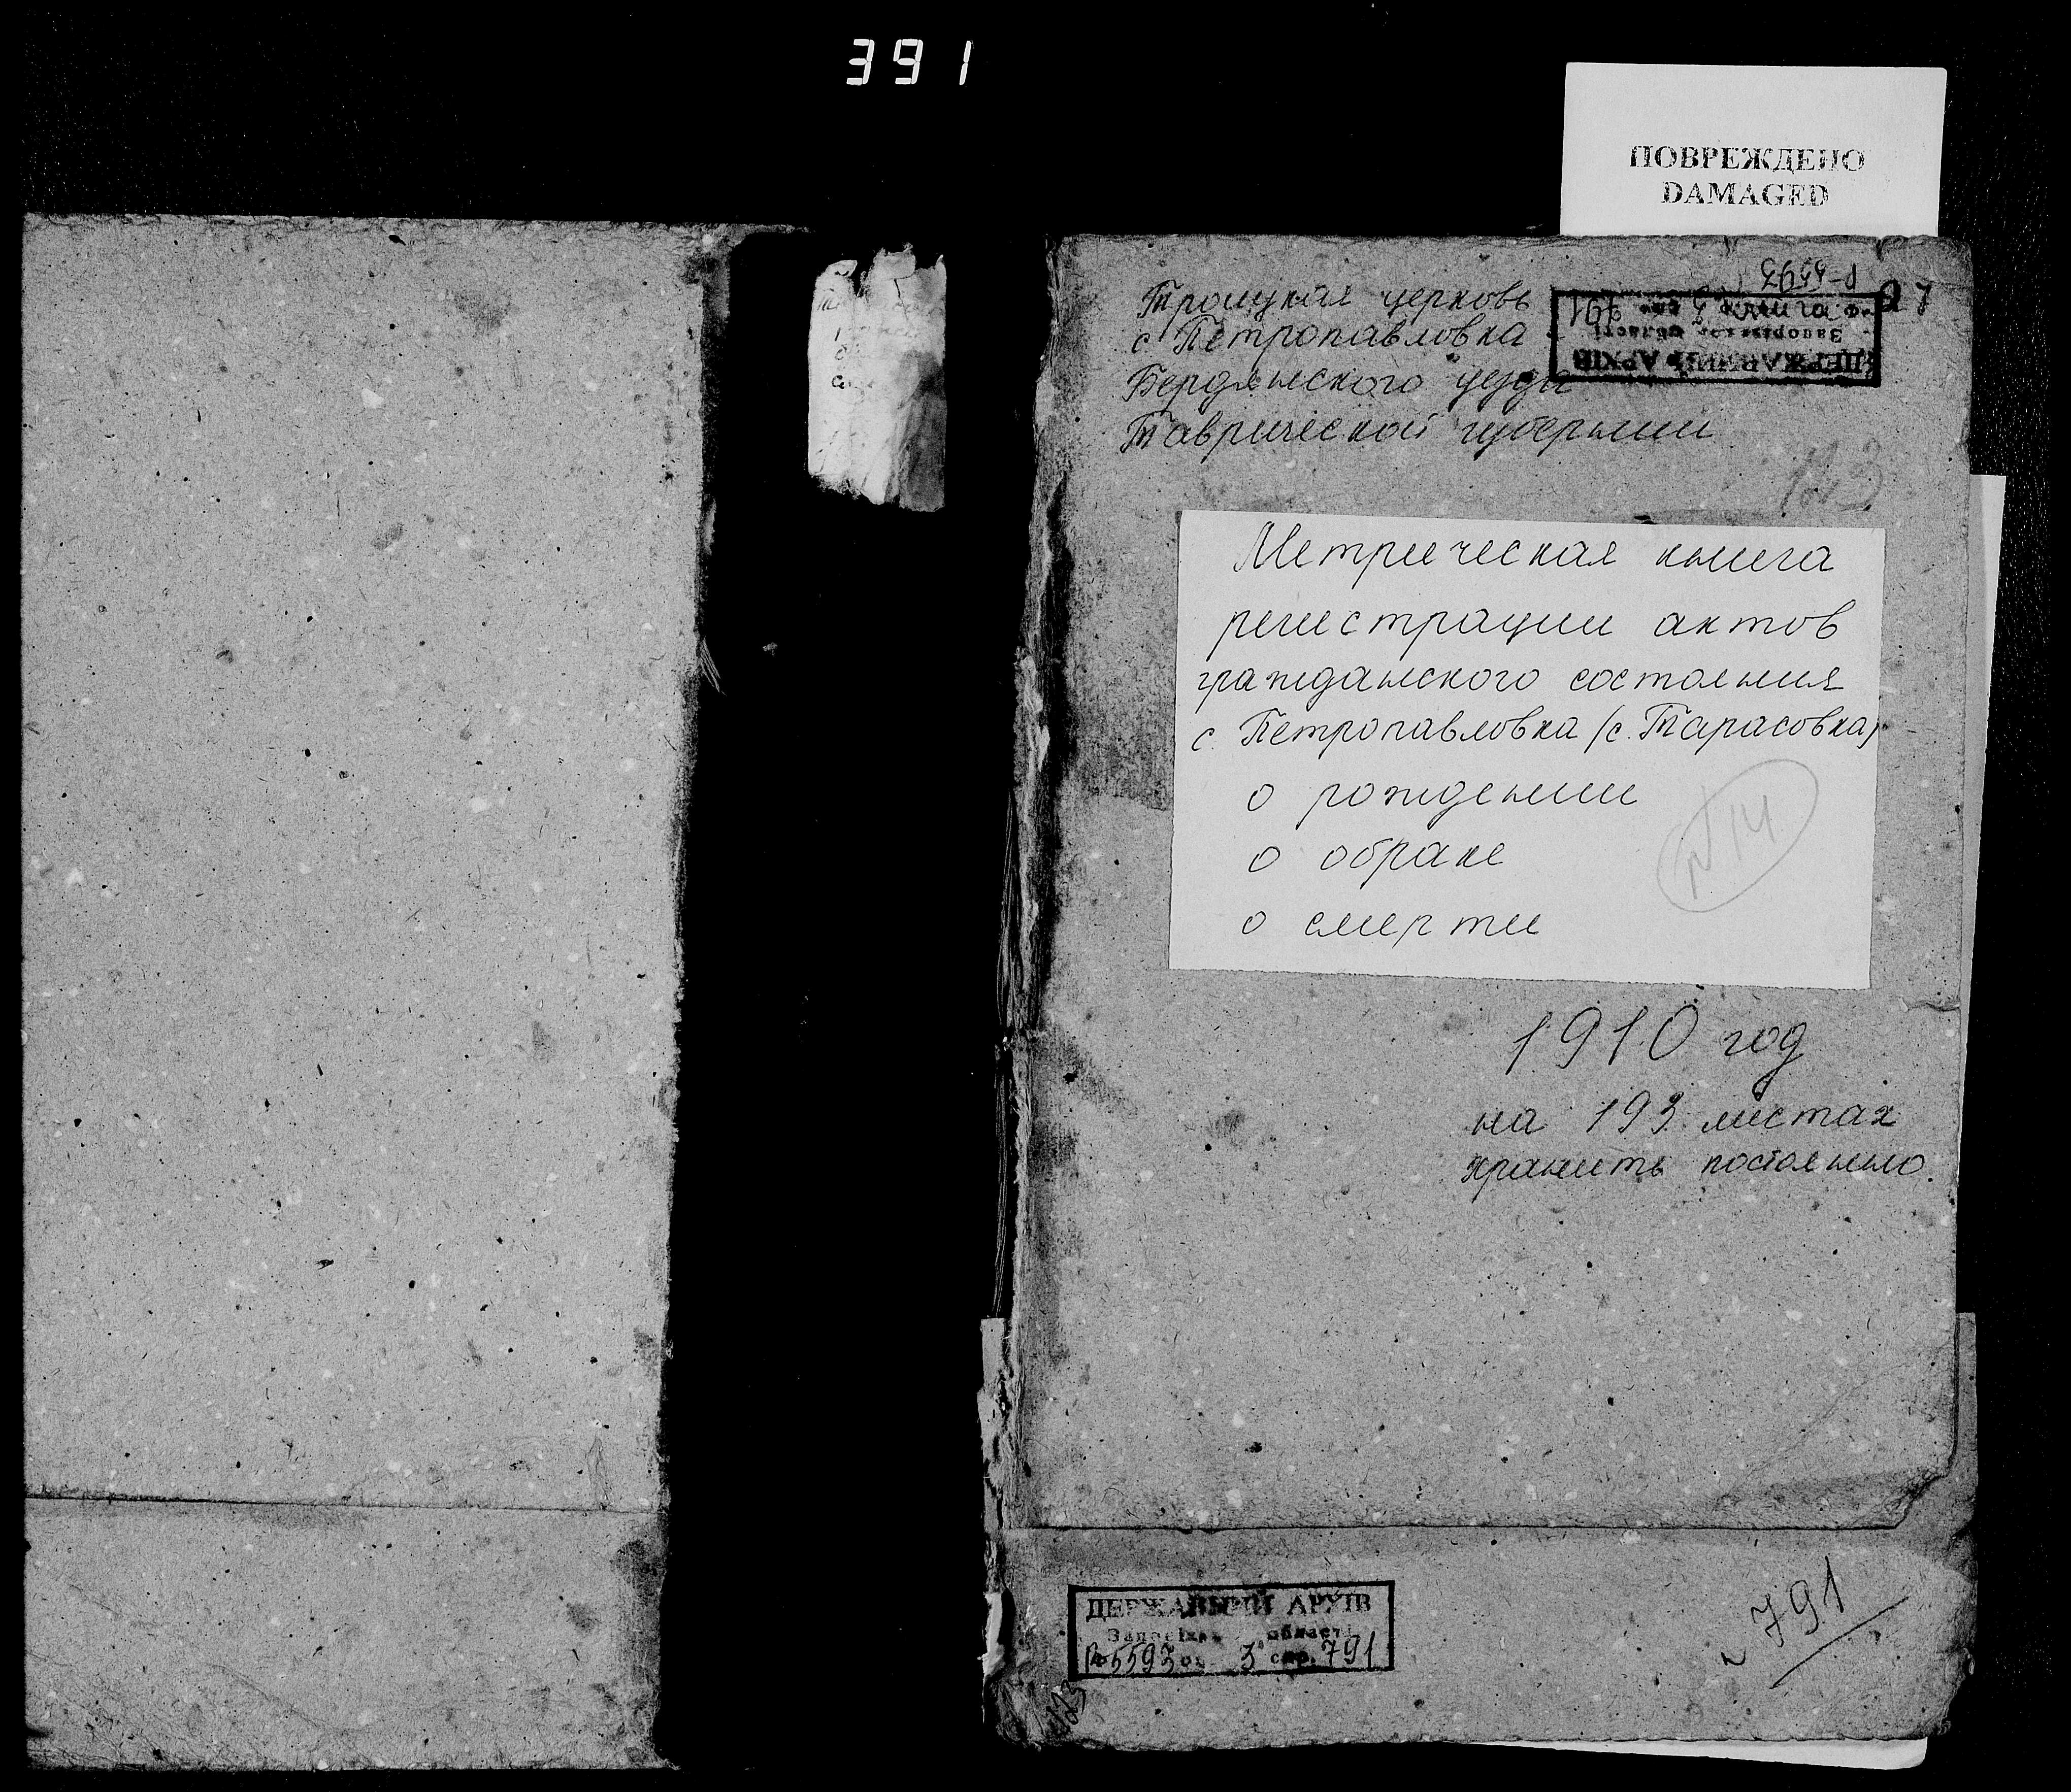 391
ПОВРЕЖДЕНО
DAMAGED
Р-5593
Троицкая церковь
с. Петропавловка
Бердянского уезда
Таврической губернии
ДЕРЖАВНИЙ АРХІВ
Запорізької області
123
Метрическая книга
регистрации актов
гражданского состояния
с. Петропавловка (с. Тарасовка)
о рождении
о браке
о смерти
N 14
1910 год
на 193 листах
хранить постоянно.
ДЕРЖАВНИЙ АРХІВ
Запорізької області
Ф. 5593 оп. 3 спр. 791
791
123